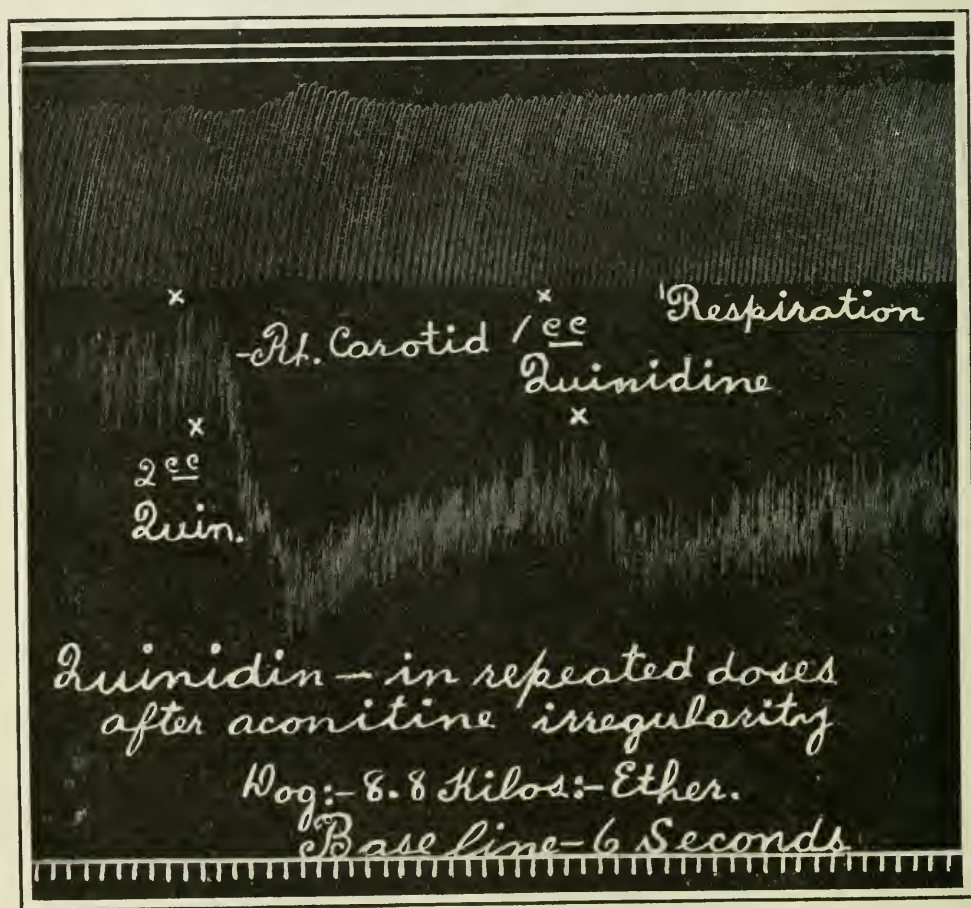 x x 'Respiration
-Rt. Carotid 1 cc
Quinidine
x x
2 cc
Quin.
Quinidin – in repeated doses
after aconitine irregularity
Dog:- 8.8 Kilos:- Ether.
Base line – 6 Seconds